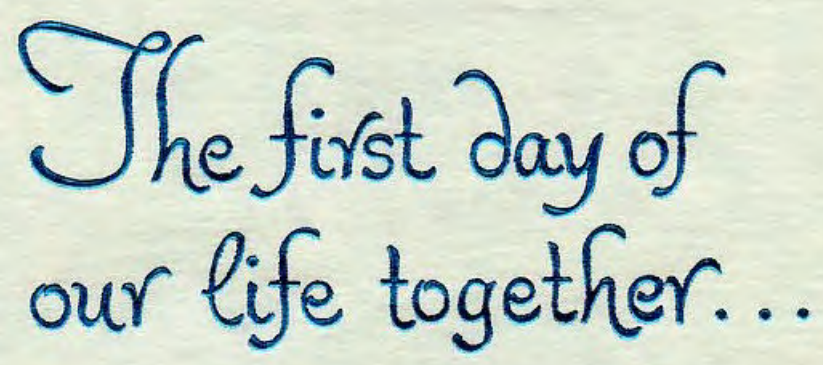 The first day of
our life together...